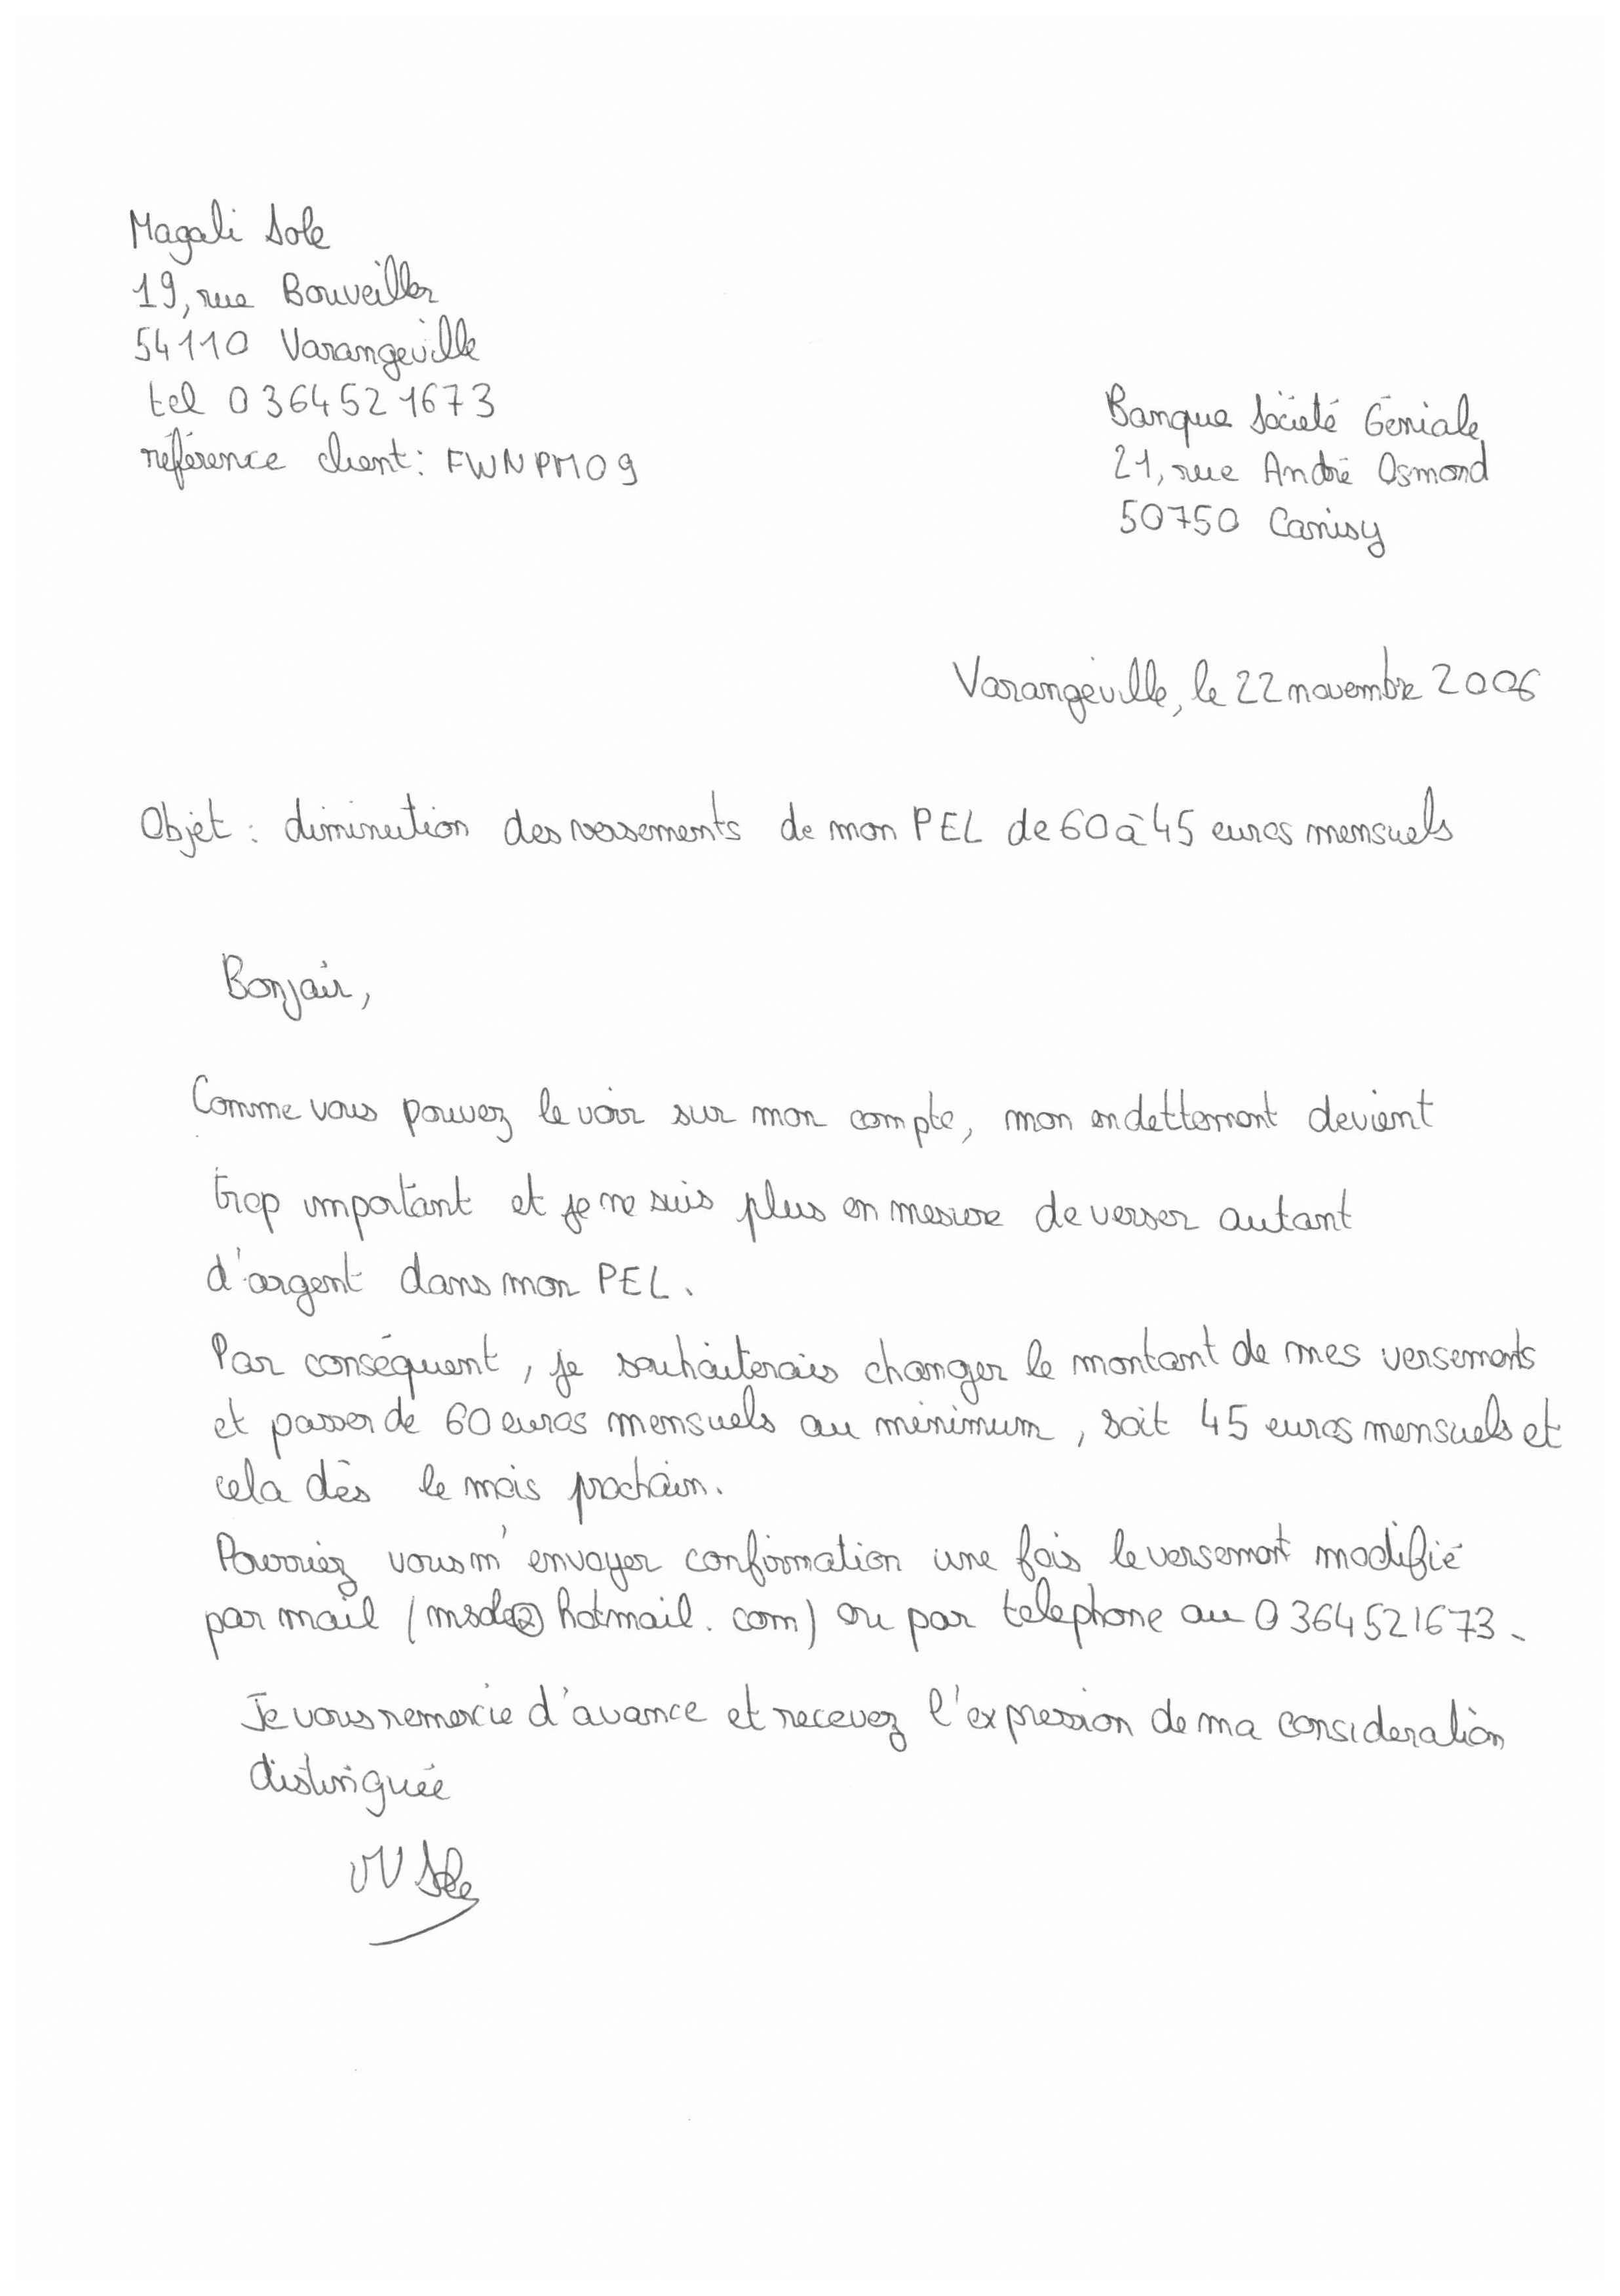 Magali Sole
19, rue Bouveiller
54110 Varangeville
tel 0364521673
référence client : FWNPM09
Banque Société Géniale
21, rue André Osmond
50750 Canisy
Varangéville, le 22 novembre 2006
Objet : diminution des versements de mon PEL de 60 à 45 euros mensuels
Bonjour,
Comme vous pouvez le voir sur mon compte, mon endettement devient
trop important et je ne suis plus en mesure de verser autant
d'argent dans mon PEL.
Par conséquent, je souhaiterais changer le montant de mes versements
et passer de 60 euros mensuels au minimum, soit 45 euros mensuels et
cela dès le mois prochain.
Pourriez vous m'envoyer confirmation une fois le versement modifié
par mail (@hotmail.com) ou par telephone au 0364521673.
Je vous remercie d'avance et recevez l'expression de ma consideration
distinguée